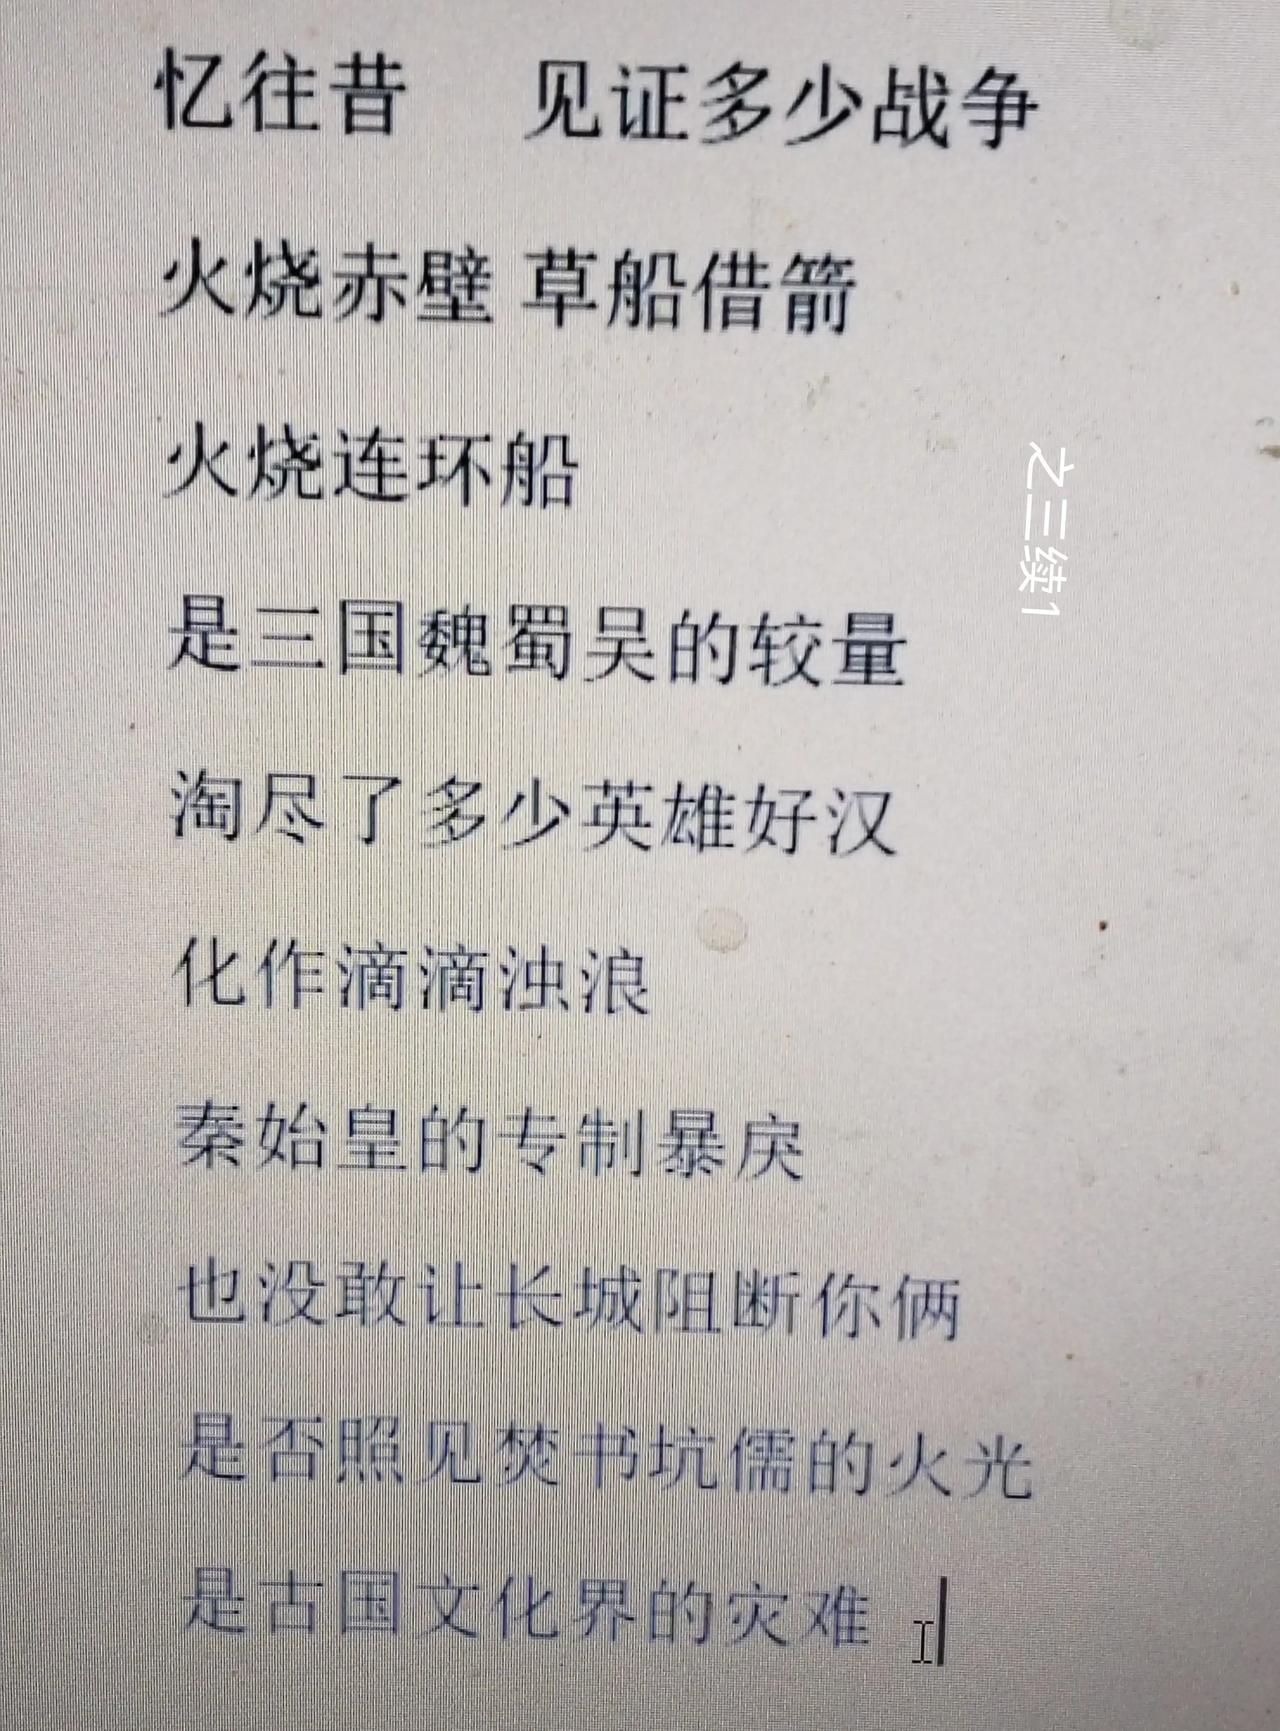 忆往昔 见证多少战争
火烧赤壁 草船借箭
火烧连环船
是三国魏蜀吴的较量
淘尽了多少英雄好汉
化作滴滴浊浪
秦始皇的专制暴戾
也没敢让长城阻断你俩
是否照见焚书坑儒的火光
是古国文化界的灾难
之三续1